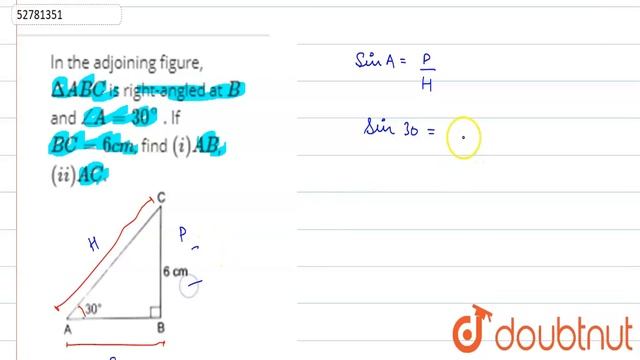 52781351
In the adjoining figure,
ΔABC is right-angled at B
and ∠A = 30° . If
BC = 6cm, find (i)AB,
(ii)AC.
C
H
P
6 cm
30°
A
B
Sin A = P/H
Sin 30 =
doubtnut